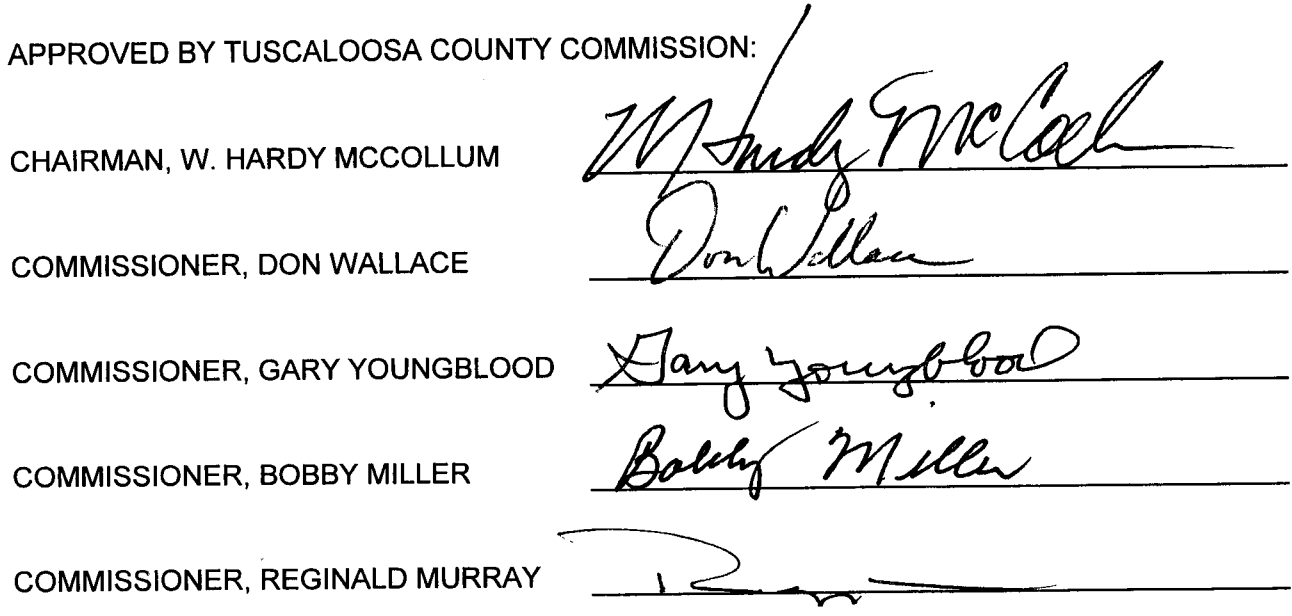 APPROVED BY TUSCALOOSA COUNTY COMMISSION:
CHAIRMAN, W. HARDY MCCOLLUM Hardy
COMMISSIONER, DON WALLACE Don Wallace
COMMISSIONER, GARY YOUNGBLOOD Gary Youngblood
COMMISSIONER, BOBBY MILLER Bobby Miller
COMMISSIONER, REGINALD MURRAY